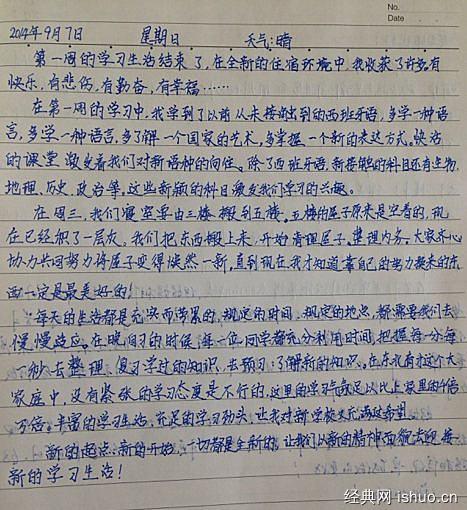 No.
Date
2014年9月7日 星期日 天气:晴
第一周的学习生活结束了,在全新的住宿环境中,我收获了许多有
快乐,有悲伤,有勤奋,有幸福……
在第一周的学习中,我学到了以前从未接触到的西班牙语,多学一种语
言,多学一种语言,多了解一个国家的艺术,多掌握一个新的表达方式,快活
的课堂激发着我们对新语种的向往。除了西班牙语,新接触的科目还有生物,
地理、历史、政治等,这些新颖的科目激发我们学习的兴趣。
在周三,我们寝室要由三楼搬到五楼,五楼的屋子原来是空着的,现
在已经积了一层灰。我们把东西搬上来,开始清理屋子,整理内务,大家齐心
协力共同努力将屋子变得焕然一新,直到现在,我才知道靠自己的努力换来的东
西一定是最美好的!
每天的生活都是充实而紧累的,规定的时间,规定的地点,都需要我们去
慢慢适应,在晚自习的时候,每一位同学都充分利用时间,把握每一分每
一秒去整理、复习学过的知识,去预习、了解新的知识。在东北育才这个大
家庭中,没有紧张的学习态度是不行的,这里的学习气氛足以比上家里的千倍
万倍。丰富的学习生活,充足的学习劲头,让我对新学校充满过希望
新的起点,新的开始,一切都是全新的。让我们以新的精神面貌去迎接
新的学习生活!
经典网-ishuo.cn